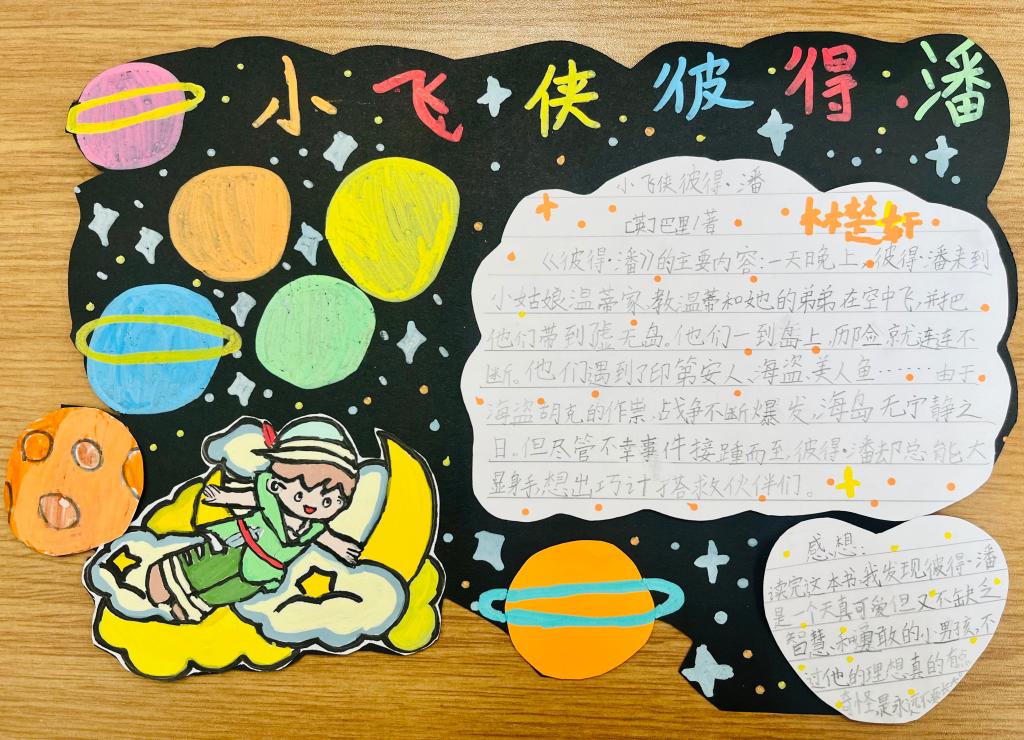 小飞侠彼得潘
小飞侠彼得·潘
[英]巴里/著
林芒轩
《彼得·潘》的主要内容:一天晚上,彼得·潘来到
小姑娘温蒂家,教温蒂和她的弟弟在空中飞,并把
他们带到虚无岛。他们一到岛上,历险就连连不
断。他们遇到了印第安人、海盗、美人鱼……由于
海盗胡克的作祟,战争不断爆发,海岛无宁静之
日。但尽管不幸事件接踵而至,彼得·潘却总能大
显身手,想出巧计搭救伙伴们。
感想:
读完这本书,我发现彼得·潘
是一个天真可爱但又不缺乏
智慧和勇敢的小男孩,不
过他的理想真的有点
奇怪是永远不要